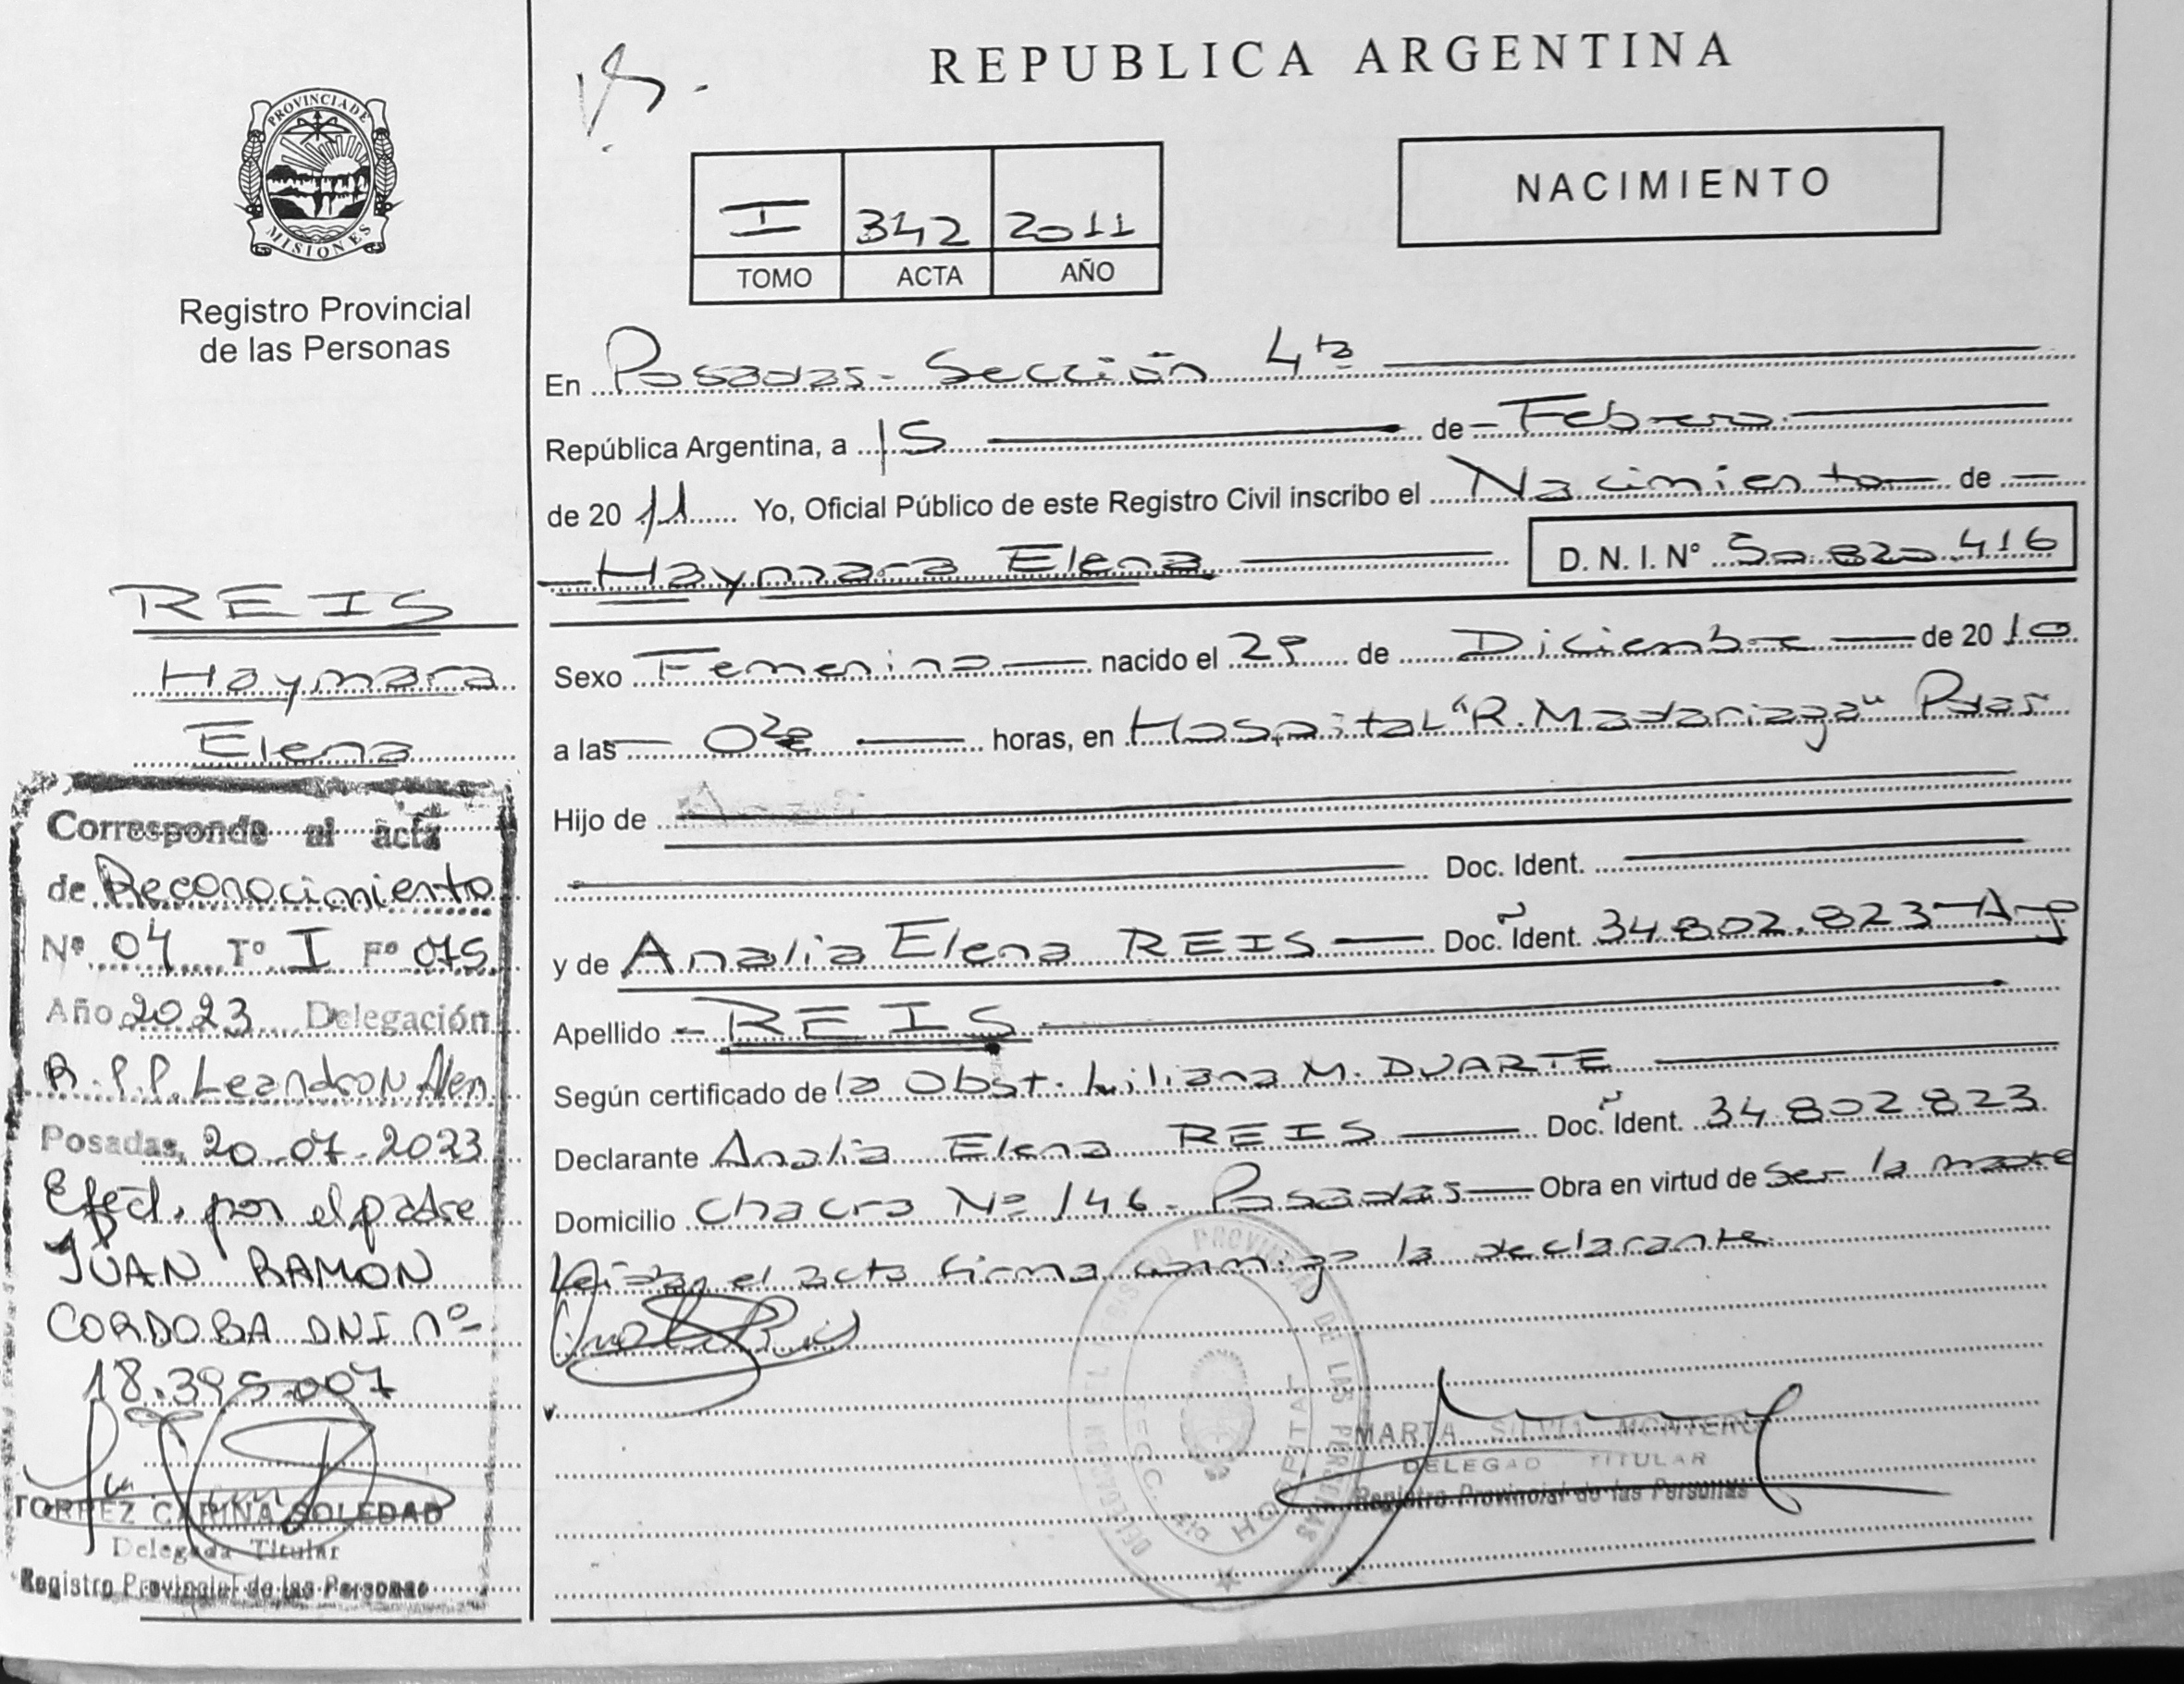 REPUBLICA ARGENTINA
PROVINCIA DE
MISIONES
Registro Provincial
de las Personas
I 342 2011
TOMO ACTA AÑO
NACIMIENTO
En Posadas - Sección 4ta
República Argentina, a 15 de Febrero
de 20 11 Yo, Oficial Público de este Registro Civil inscribo el Nacimiento de
Haymara Elena D. N. I. N° 50.820.416
Sexo Femenino nacido el 29 de Diciembre de 20 10
a las horas, en Hospital "R. Madariaga" Pdas
Hijo de
Doc. Ident.
y de Analia Elena REIS Doc. Ident. 34.802.823 - Arg
Apellido REIS
Según certificado de la Obst. Liliana M. DUARTE
Declarante Analia Elena REIS Doc. Ident. 34.802.823
Domicilio Chacra Nº 146 - Posadas Obra en virtud de ser la madre
Leida el acta firma conmigo la declarante
MARTA SILVIA MONTERO
DELEGAD TITULAR
Registro Provincial de las Personas
DELEGACION DEL REGISTRO PROVINCIAL DE LAS PERSONAS
SECC. 4ta HOSPITAL
REIS
Haymara
Elena
Corresponde al acta
de Reconocimiento
Nº 04 Tº I Fº 075
Año 2023 Delegación
R.P.P. Leandro N Alen
Posadas, 20-07-2023
Efect. por el padre
JUAN RAMON
CORDOBA DNI nº
18.395.007
TORREZ CARINA SOLEDAD
Delegada Titular
Registro Provincial de las Personas